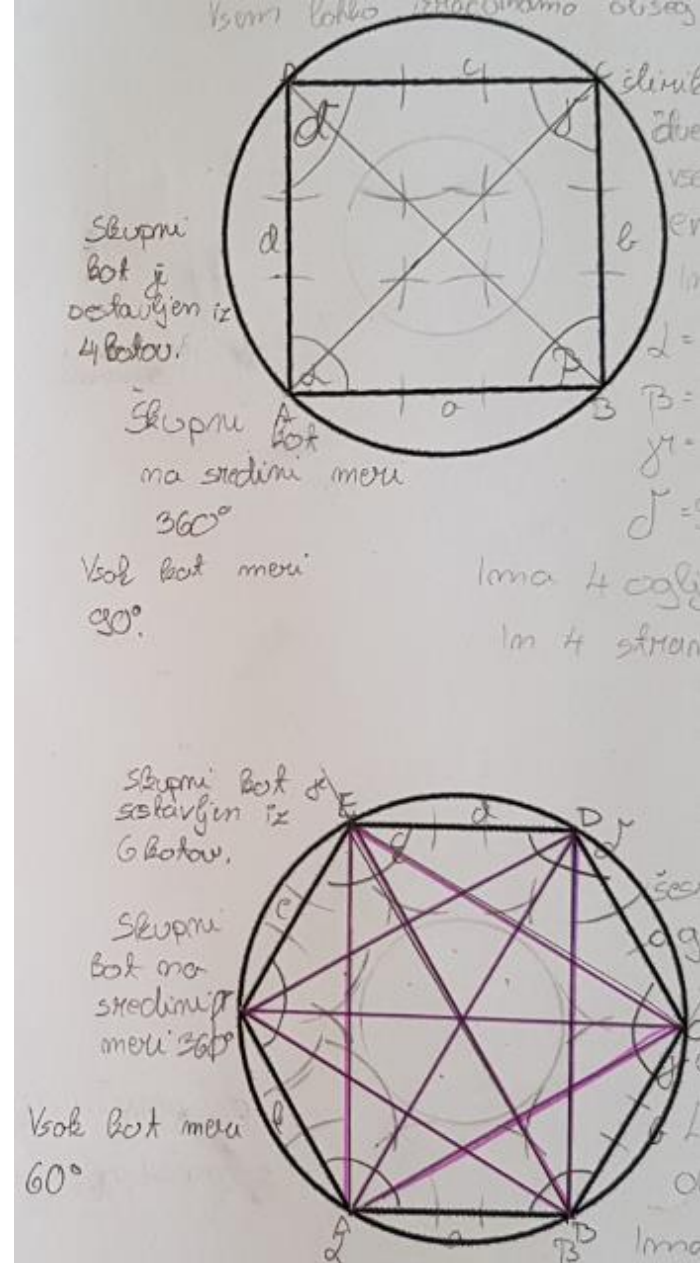 Vsem lahko izračunamo obseg
D c C
δ γ
d b
Skupni
kot je
sestavljen iz
4 kotov.
α β
A a B
Skupni kot
na sredini meri
360°
Vsak kot meri
90°.
α =
β =
γ =
δ =
Ima 4 oglj
In 4 stran
Skupni kot je
sestavljen iz
6 kotov.
E d D
e
Skupni
kot na
sredini
meri 360°
Vsak kot meri
60°
A a B
α β
Ima